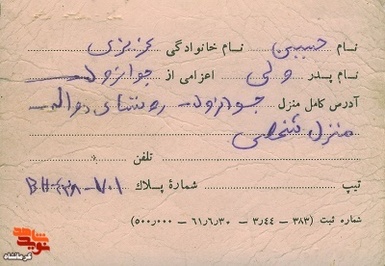 نام حبیب نام خانوادگی عزیزی
نام پدر ولی اعزامی از جوانرود
آدرس کامل منزل جوانرود - روستای دواله -
منزل شخصی
تلفن
تیپ شمارهٔ پلاک BH-438-701
شماره ثبت (۳۸۳ - ۳٫۴۴ - ۶۱٫۶٫۳۰ - ۵۰۰٫۰۰۰)
نوید شاهد
کرمانشاه